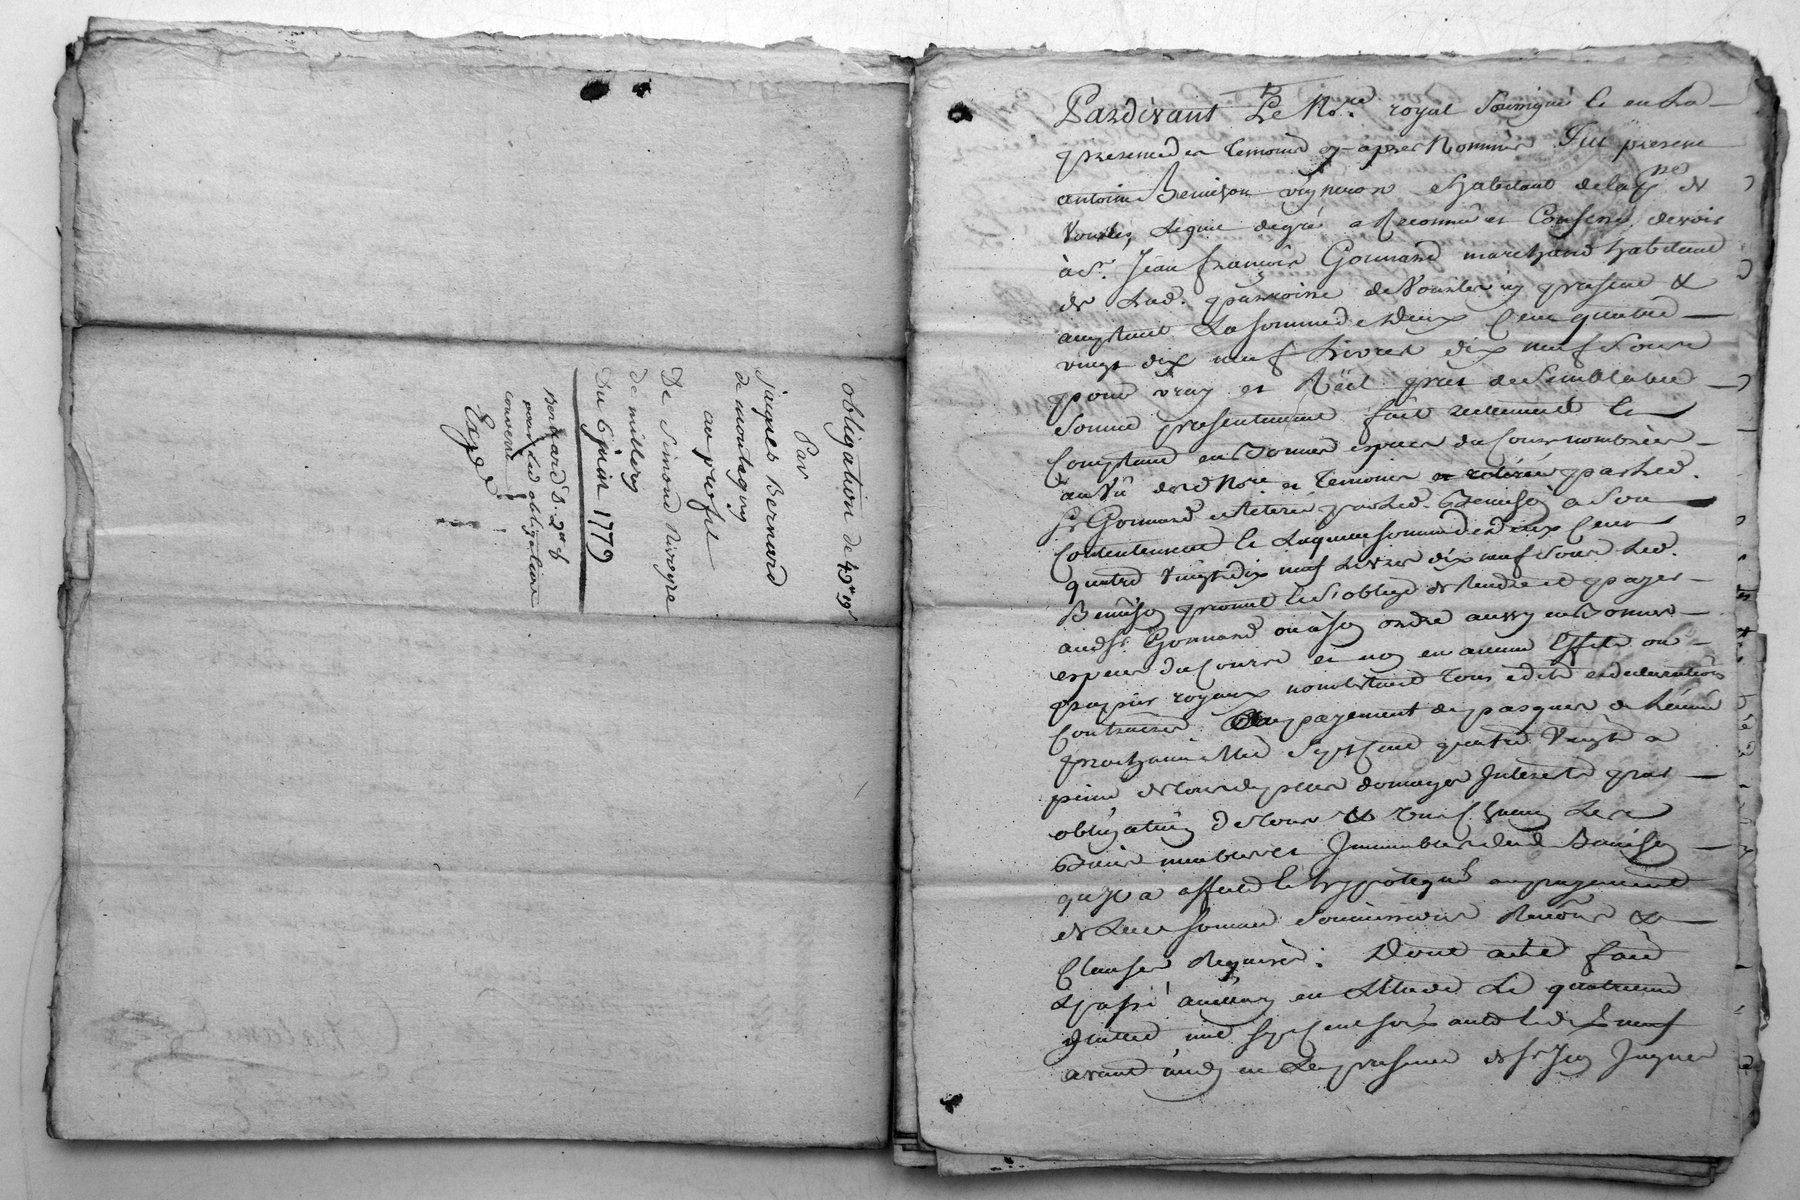 obligation de 49ᵗᵗ 19ˢ
Par
jaques Bernard
de montagny
au profit
De Simond Rivoyre
de millery
Du 6 juin 1779
Bernard d. 2
pour lad obligation
controle
Exp
Pardevant Le No.re royal Soussigné & en La
presence des temoins cy apres Nommés Fut present
antoine Benisson vigneron & habitant de la p.sse de
Vourles, Lequel de gré a Reconnu et Confessé devoir
à S.r Jean francois Gonnard marchand habitant
de Lad. parroisse de Vourles icy present &
acceptant La somme de Deux Cent quatre
vingt dix neuf Livres dix neuf Sous
pour vray et Réel pret de Semblable
Somme presentement fait reellement &
Comptant en Bonnes especes du Cours nombrées
au Vû dud Nore et temoins et retirée par Led.
Sr Gonnard et Retirée par Led. Benisson a Son
Contentement & Laquelle somme de deux Cent
quatre Vingt dix neuf Livres dix neuf Sous Led.
Benisson promet & S'oblige de Rendre et payer
aud Sr. Gonnard ou à son ordre aussy en Bonnes
especes du Cours et non en aucun Effets ou
papier royaux nonobstant tous edits et declarations
Contraires au payement de pasques de L'année
prochaine Mil Sept Cent quatre Vingt a
peine de tous depens domages Interets par
obligation de tous & un chacun Les
Biens meubles et Immeubles dud Benisson
qu'il a affecté & hypotequé au payement
de Lad somme Soumissions Renon &
Clauses Requises. Dont acte fait
& passé aud en Etude Le quatrieme
Juillet mil sept cent soix ante & dix neuf
avant midy en La presence de Sr Jaques